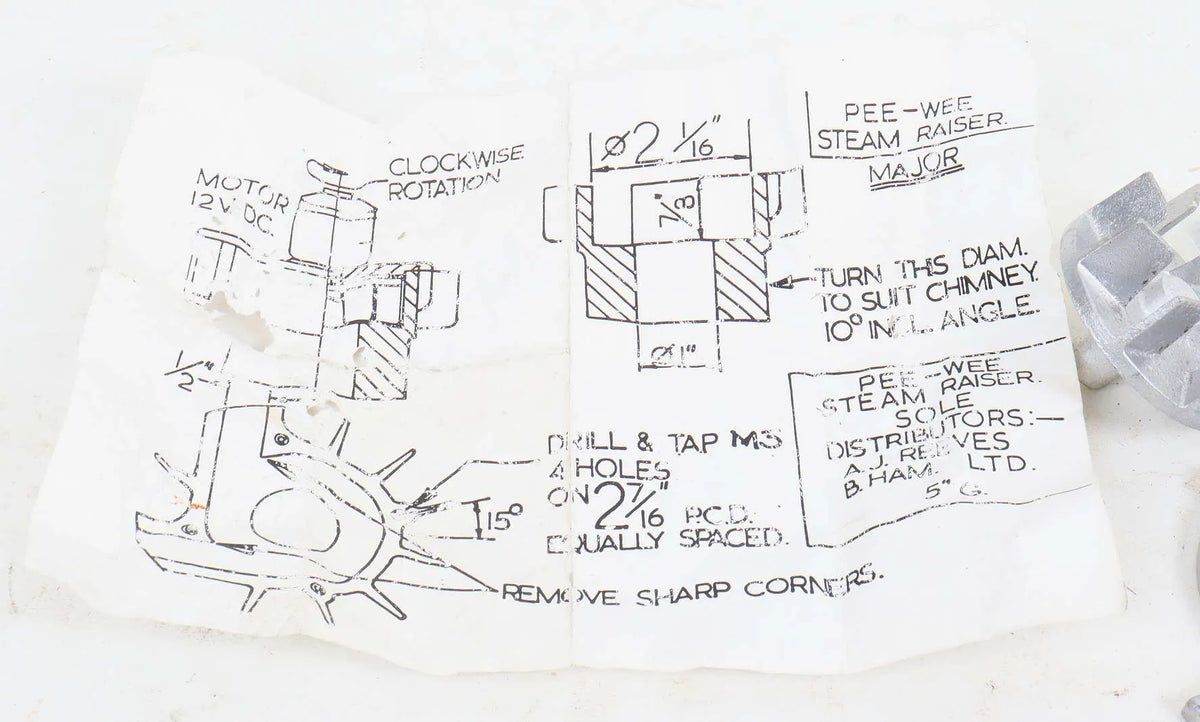 PEE-WEE
STEAM RAISER.
MAJOR
CLOCKWISE
ROTATION
MOTOR
12V DC
Ø2 1/16"
7/8
TURN THIS DIAM.
TO SUIT CHIMNEY.
10° INCL. ANGLE.
Ø1"
1/2"
PEE-WEE
STEAM RAISER.
SOLE
DISTRIBUTORS:—
A.J. REEVES
B.HAM. LTD.
5" G.
DRILL & TAP M3
4 HOLES
ON 2 7/16" P.C.D.
EQUALLY SPACED.
15°
REMOVE SHARP CORNERS.